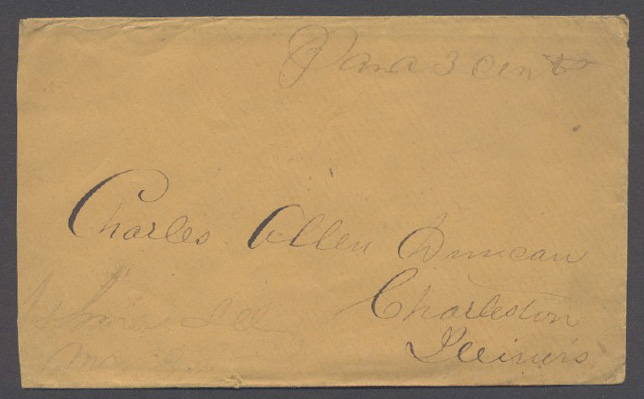 Paid 3 cents
Charles Allen Duncan
Charleston
Illinois